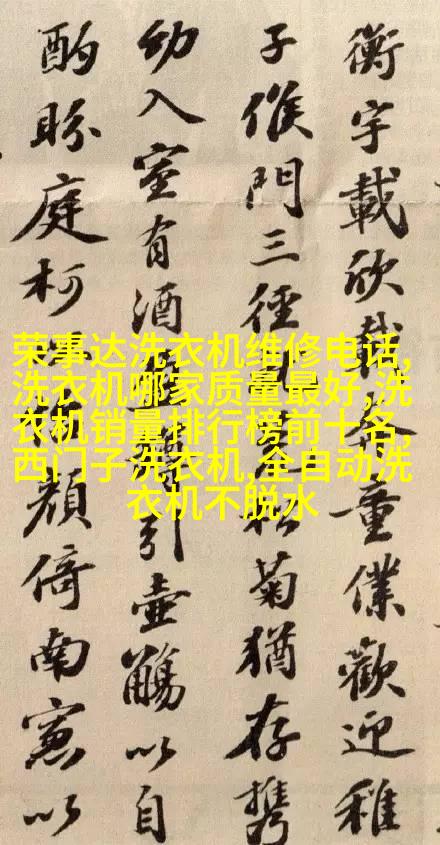 衡宇載欣載童僕歡迎稚
子候門三徑松菊猶存携
幼入室有酒引壺觴以自
酌眄庭柯顏倚南窓以
荣事达洗衣机维修电话,
洗衣机哪家质量最好,洗
衣机销量排行榜前十名,
西门子洗衣机,全自动洗
衣机不脱水